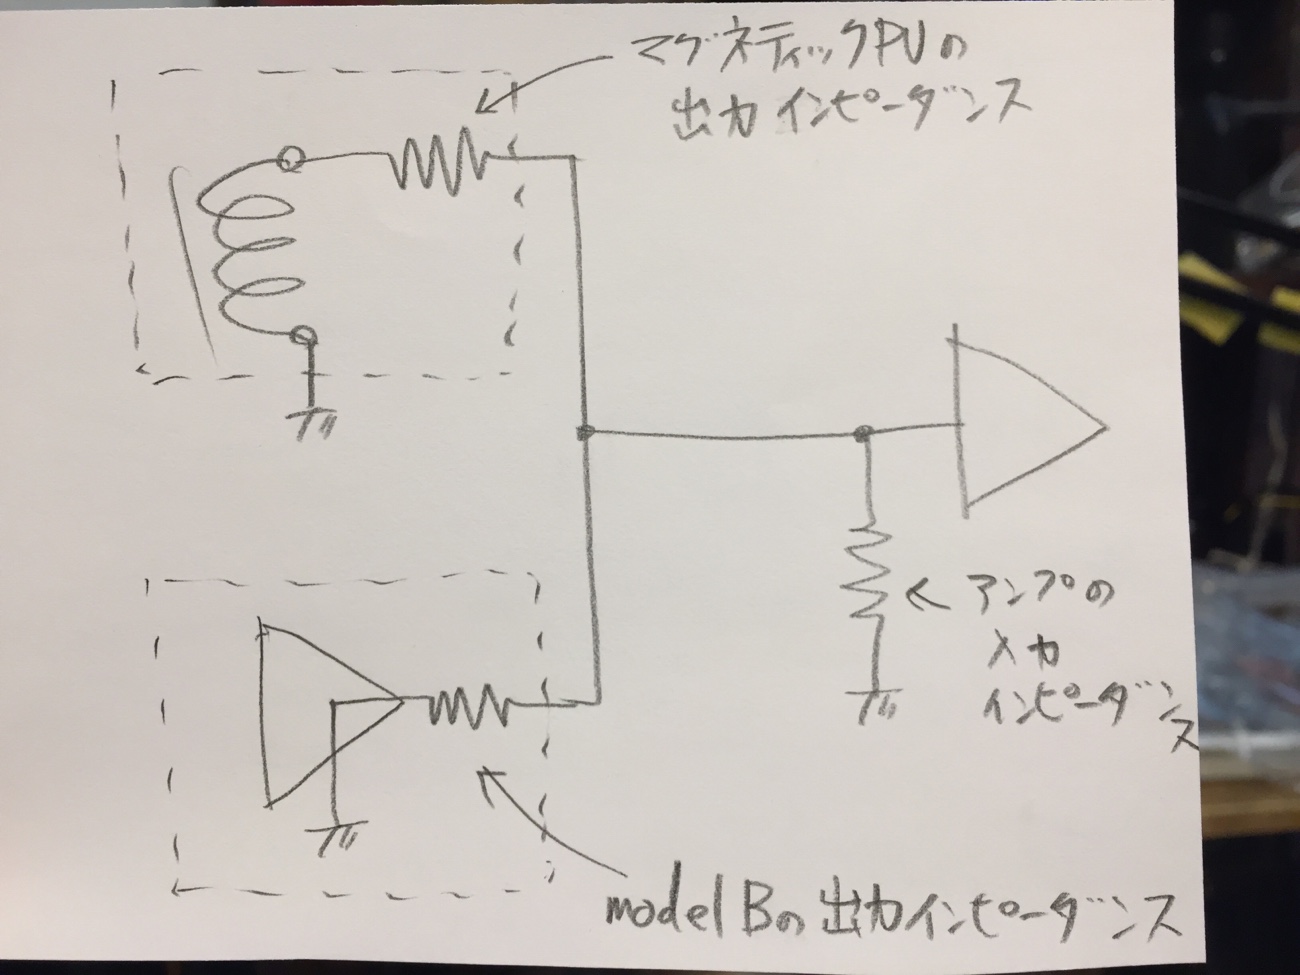 マグネティックPUの
出力インピーダンス
アンプの
入力
インピーダンス
model Bの出力インピーダンス